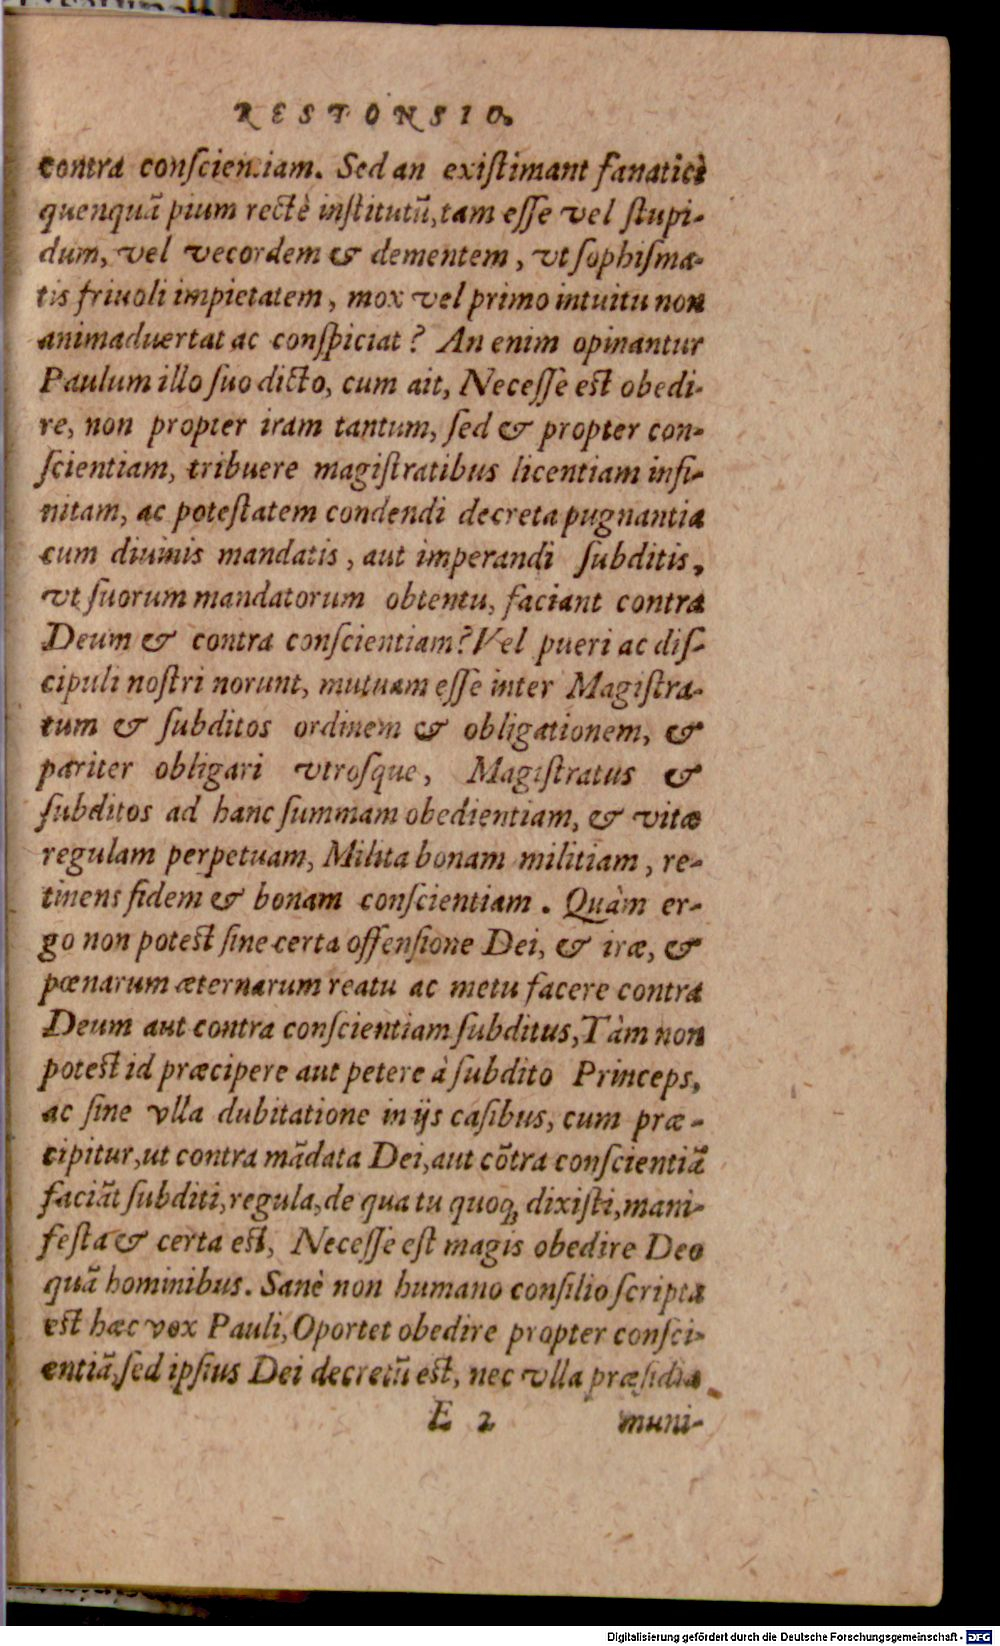 RESPONSIO.
contra conſcientiam. Sed an exiſtimant fanatici
quenquā pium rectè inſtitutū, tam eſſe vel ſtupi-
dum, vel vecordem & dementem, vt ſophiſma-
tis friuoli impietatem, mox vel primo intuitu non
animaduertat ac conſpiciat? An enim opinantur
Paulum illo ſuo dicto, cum ait, Neceſſe est obedi-
re, non propter iram tantum, ſed & propter con-
ſcientiam, tribuere magiſtratibus licentiam infi-
nitam, ac poteſtatem condendi decreta pugnantia
cum diuinis mandatis, aut imperandi ſubditis,
vt ſuorum mandatorum obtentu, faciant contra
Deum & contra conſcientiam? Vel pueri ac diſ-
cipuli noſtri norunt, mutuam eſſe inter Magiſtra-
tum & ſubditos ordinem & obligationem, &
pariter obligari vtroſque, Magiſtratus &
ſubditos ad hanc ſummam obedientiam, & vitæ
regulam perpetuam, Milita bonam militiam, re-
tinens fidem & bonam conſcientiam. Quàm er-
go non potest ſine certa offenſione Dei, & iræ, &
pœnarum æternarum reatu ac metu facere contra
Deum aut contra conſcientiam ſubditus, Tàm non
potest id præcipere aut petere à ſubdito Princeps,
ac ſine vlla dubitatione in ijs caſibus, cum præ-
cipitur, ut contra mādata Dei, aut cōtra conſcientiā
faciāt ſubditi, regula, de qua tu quoq; dixiſti, mani-
feſta & certa est, Neceſſe eſt magis obedire Deo
quā hominibus. Sanè non humano conſilio ſcripta
est hæc vox Pauli, Oportet obedire propter conſci-
entiā, ſed ipſius Dei decretū est, nec vlla præſidia
E 2 muni-
Digitalisierung gefördert durch die Deutsche Forschungsgemeinschaft - DFG